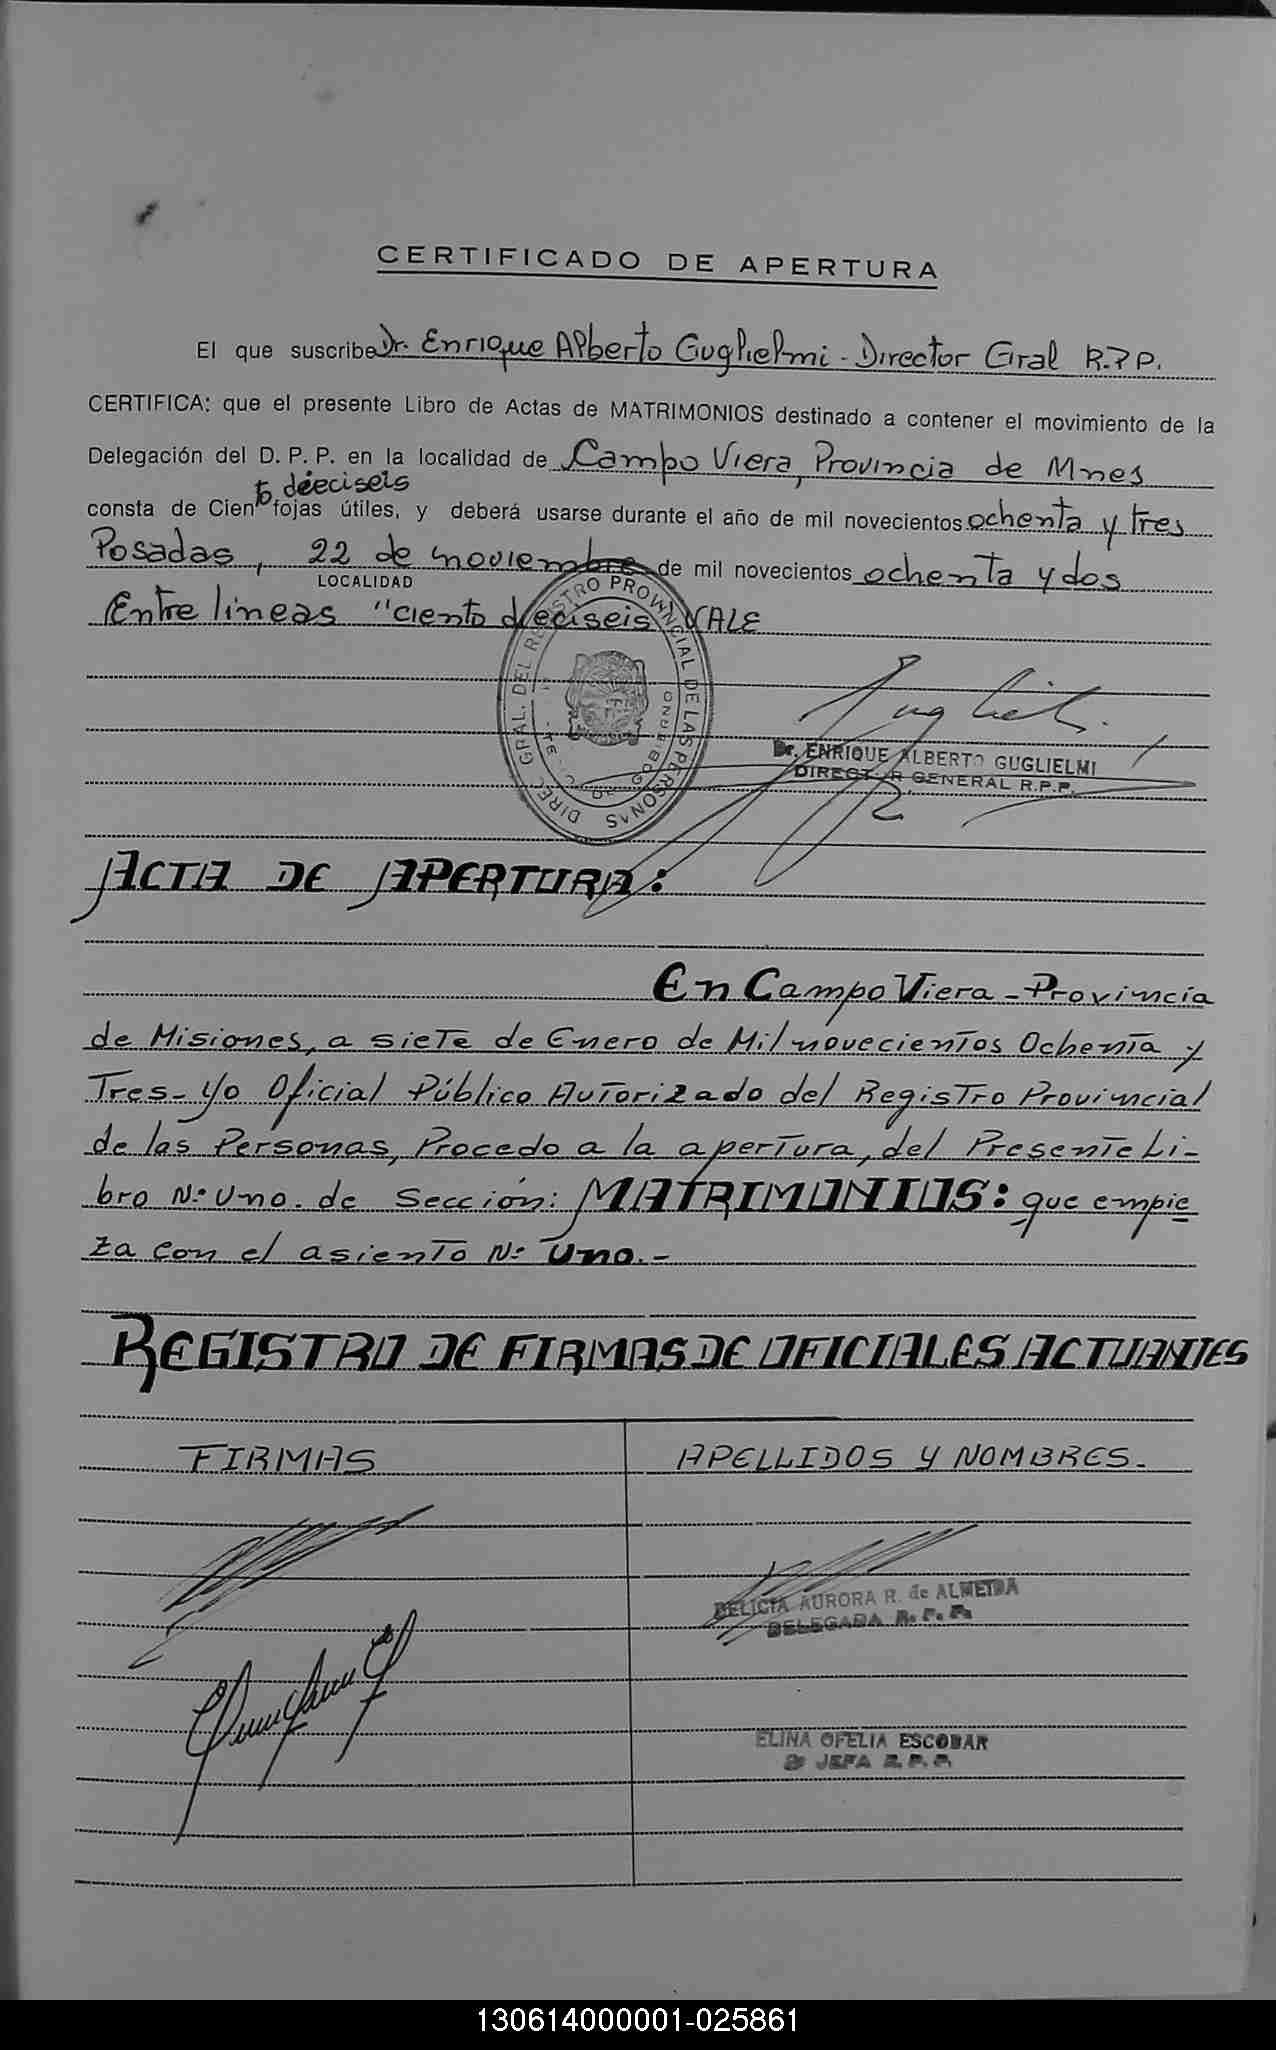 CERTIFICADO DE APERTURA
El que suscribe Dr. Enrique Alberto Guglielmi - Director Gral R.P.P.
CERTIFICA: que el presente Libro de Actas de MATRIMONIOS destinado a contener el movimiento de la
Delegación del D. P. P. en la localidad de Campo Viera, Provincia de Mnes
to dieciseis
consta de Cien fojas útiles, y deberá usarse durante el año de mil novecientos ochenta y tres
Posadas, 22 de noviembre de mil novecientos ochenta y dos
LOCALIDAD
Entre lineas "ciento dieciseis VALE
DIREC. GRAL. DEL REGISTRO PROVINCIAL DE LAS PERSONAS
Dr. ENRIQUE ALBERTO GUGLIELMI
DIRECTOR GENERAL R.P.P.
ACTA DE APERTURA:
En Campo Viera - Provincia
de Misiones, a siete de Enero de Mil novecientos Ochenta y
Tres- yo Oficial Público Autorizado del Registro Provincial
de las Personas, Procedo a la apertura, del Presente Li-
bro N: Uno. de Sección: MATRIMONIOS: que empie
za con el asiento N: Uno.-
REGISTRO DE FIRMAS DE OFICIALES ACTUANTES
FIRMAS APELLIDOS Y NOMBRES.
DELICIA AURORA R. de ALMEIDA
DELEGADA R. P. P.
ELINA OFELIA ESCOBAR
JEFA R. P. P.
130614000001-025861